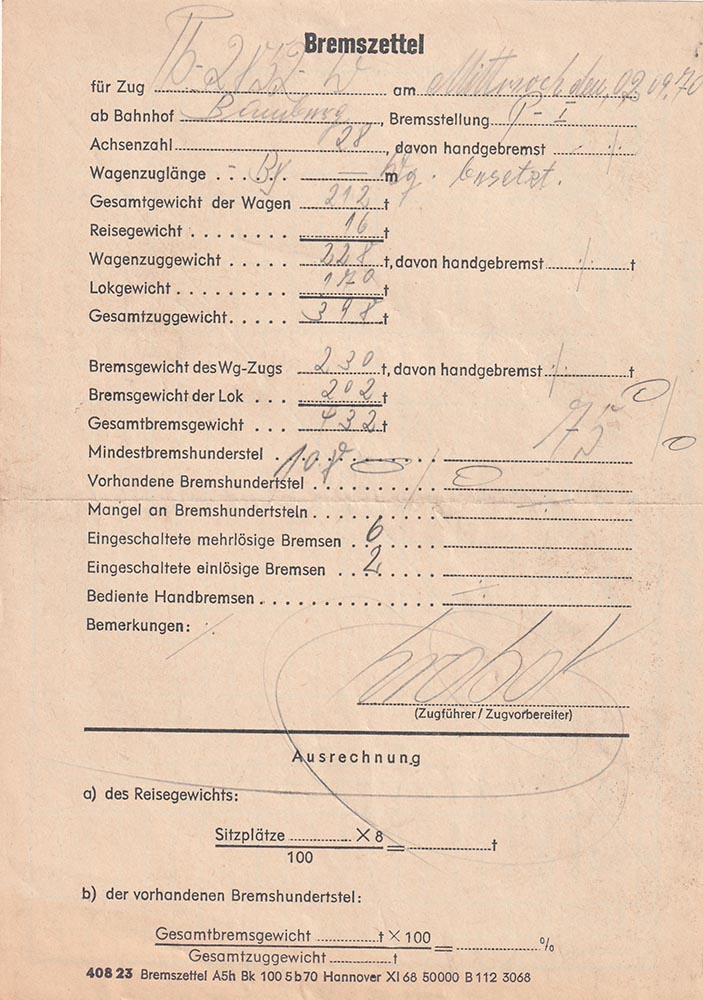 Bremszettel
für Zug 2852 am Mittwoch den 02.09.70
ab Bahnhof Bamberg, Bremsstellung P-I
Achsenzahl 28, davon handgebremst
Wagenzuglänge m Wg. besetzt.
Gesamtgewicht der Wagen 212 t
Reisegewicht 16 t
Wagenzuggewicht 228 t, davon handgebremst t
Lokgewicht 170 t
Gesamtzuggewicht 398 t
Bremsgewicht des Wg-Zugs 230 t, davon handgebremst t
Bremsgewicht der Lok 202 t
Gesamtbremsgewicht 432 t
Mindestbremshunderstel 75
Vorhandene Bremshundertstel 108
Mangel an Bremshundertsteln
Eingeschaltete mehrlösige Bremsen 6
Eingeschaltete einlösige Bremsen 2
Bediente Handbremsen
Bemerkungen:
(Zugführer / Zugvorbereiter)
Ausrechnung
a) des Reisegewichts:
Sitzplätze × 8
= t
100
b) der vorhandenen Bremshundertstel:
Gesamtbremsgewicht t × 100
= %
Gesamtzuggewicht t
408 23 Bremszettel A5h Bk 100 5b70 Hannover XI 68 50000 B 112 3068